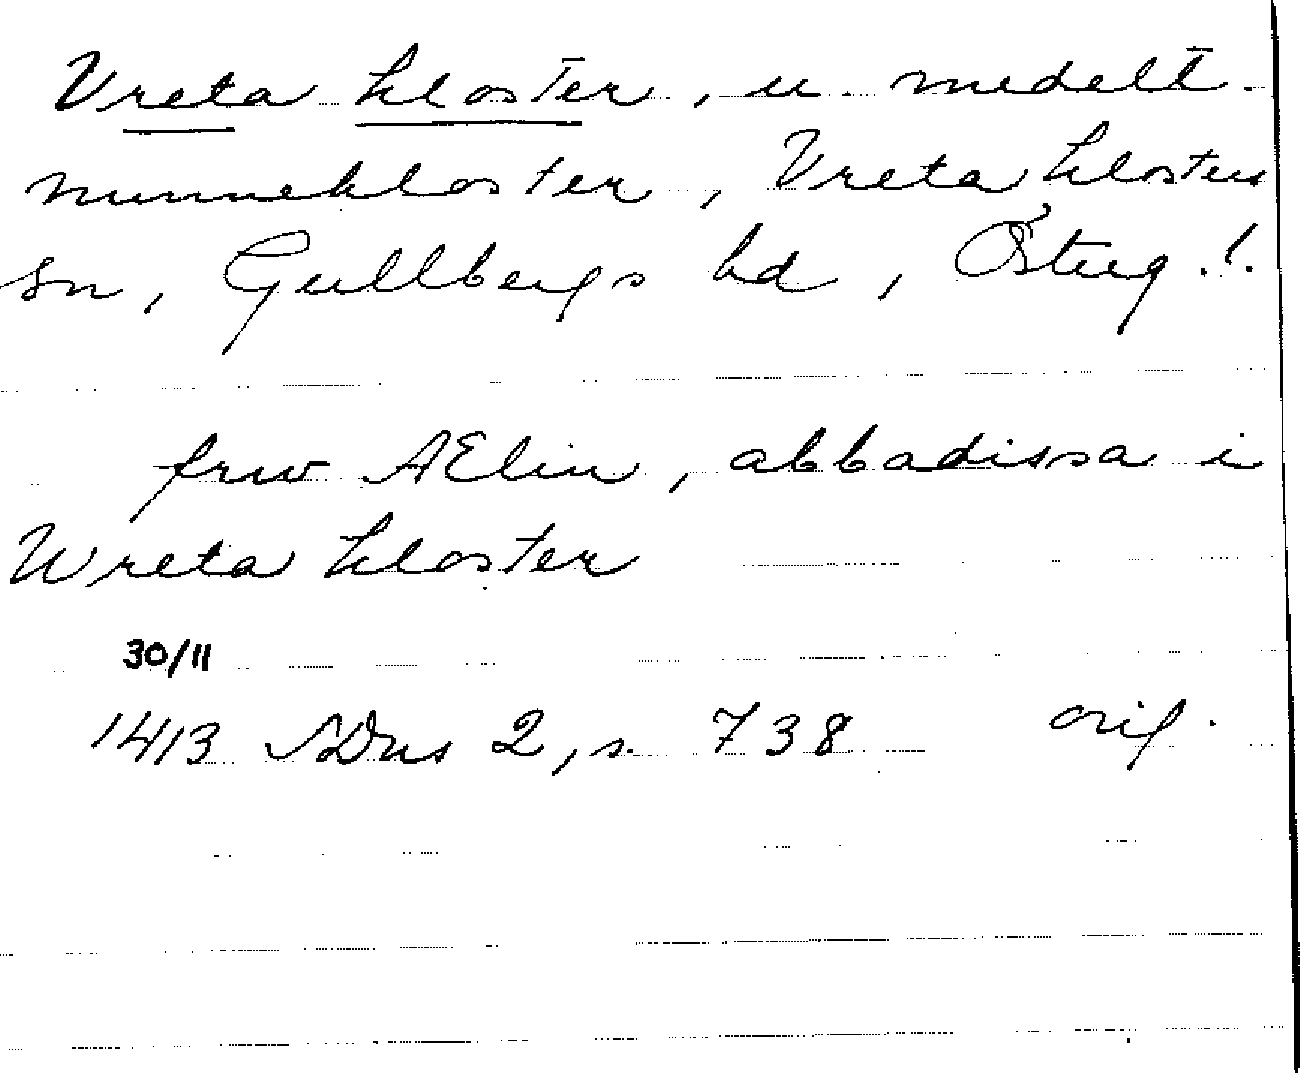 Vreta kloster, u. medelt.
nunnekloster, Vreta klosters
sn, Gullbergs hd, Österg.l.
frw AElin, abbadissa i
Wreta kloster
30/11
1413 SDns 2, s. 738 orig.